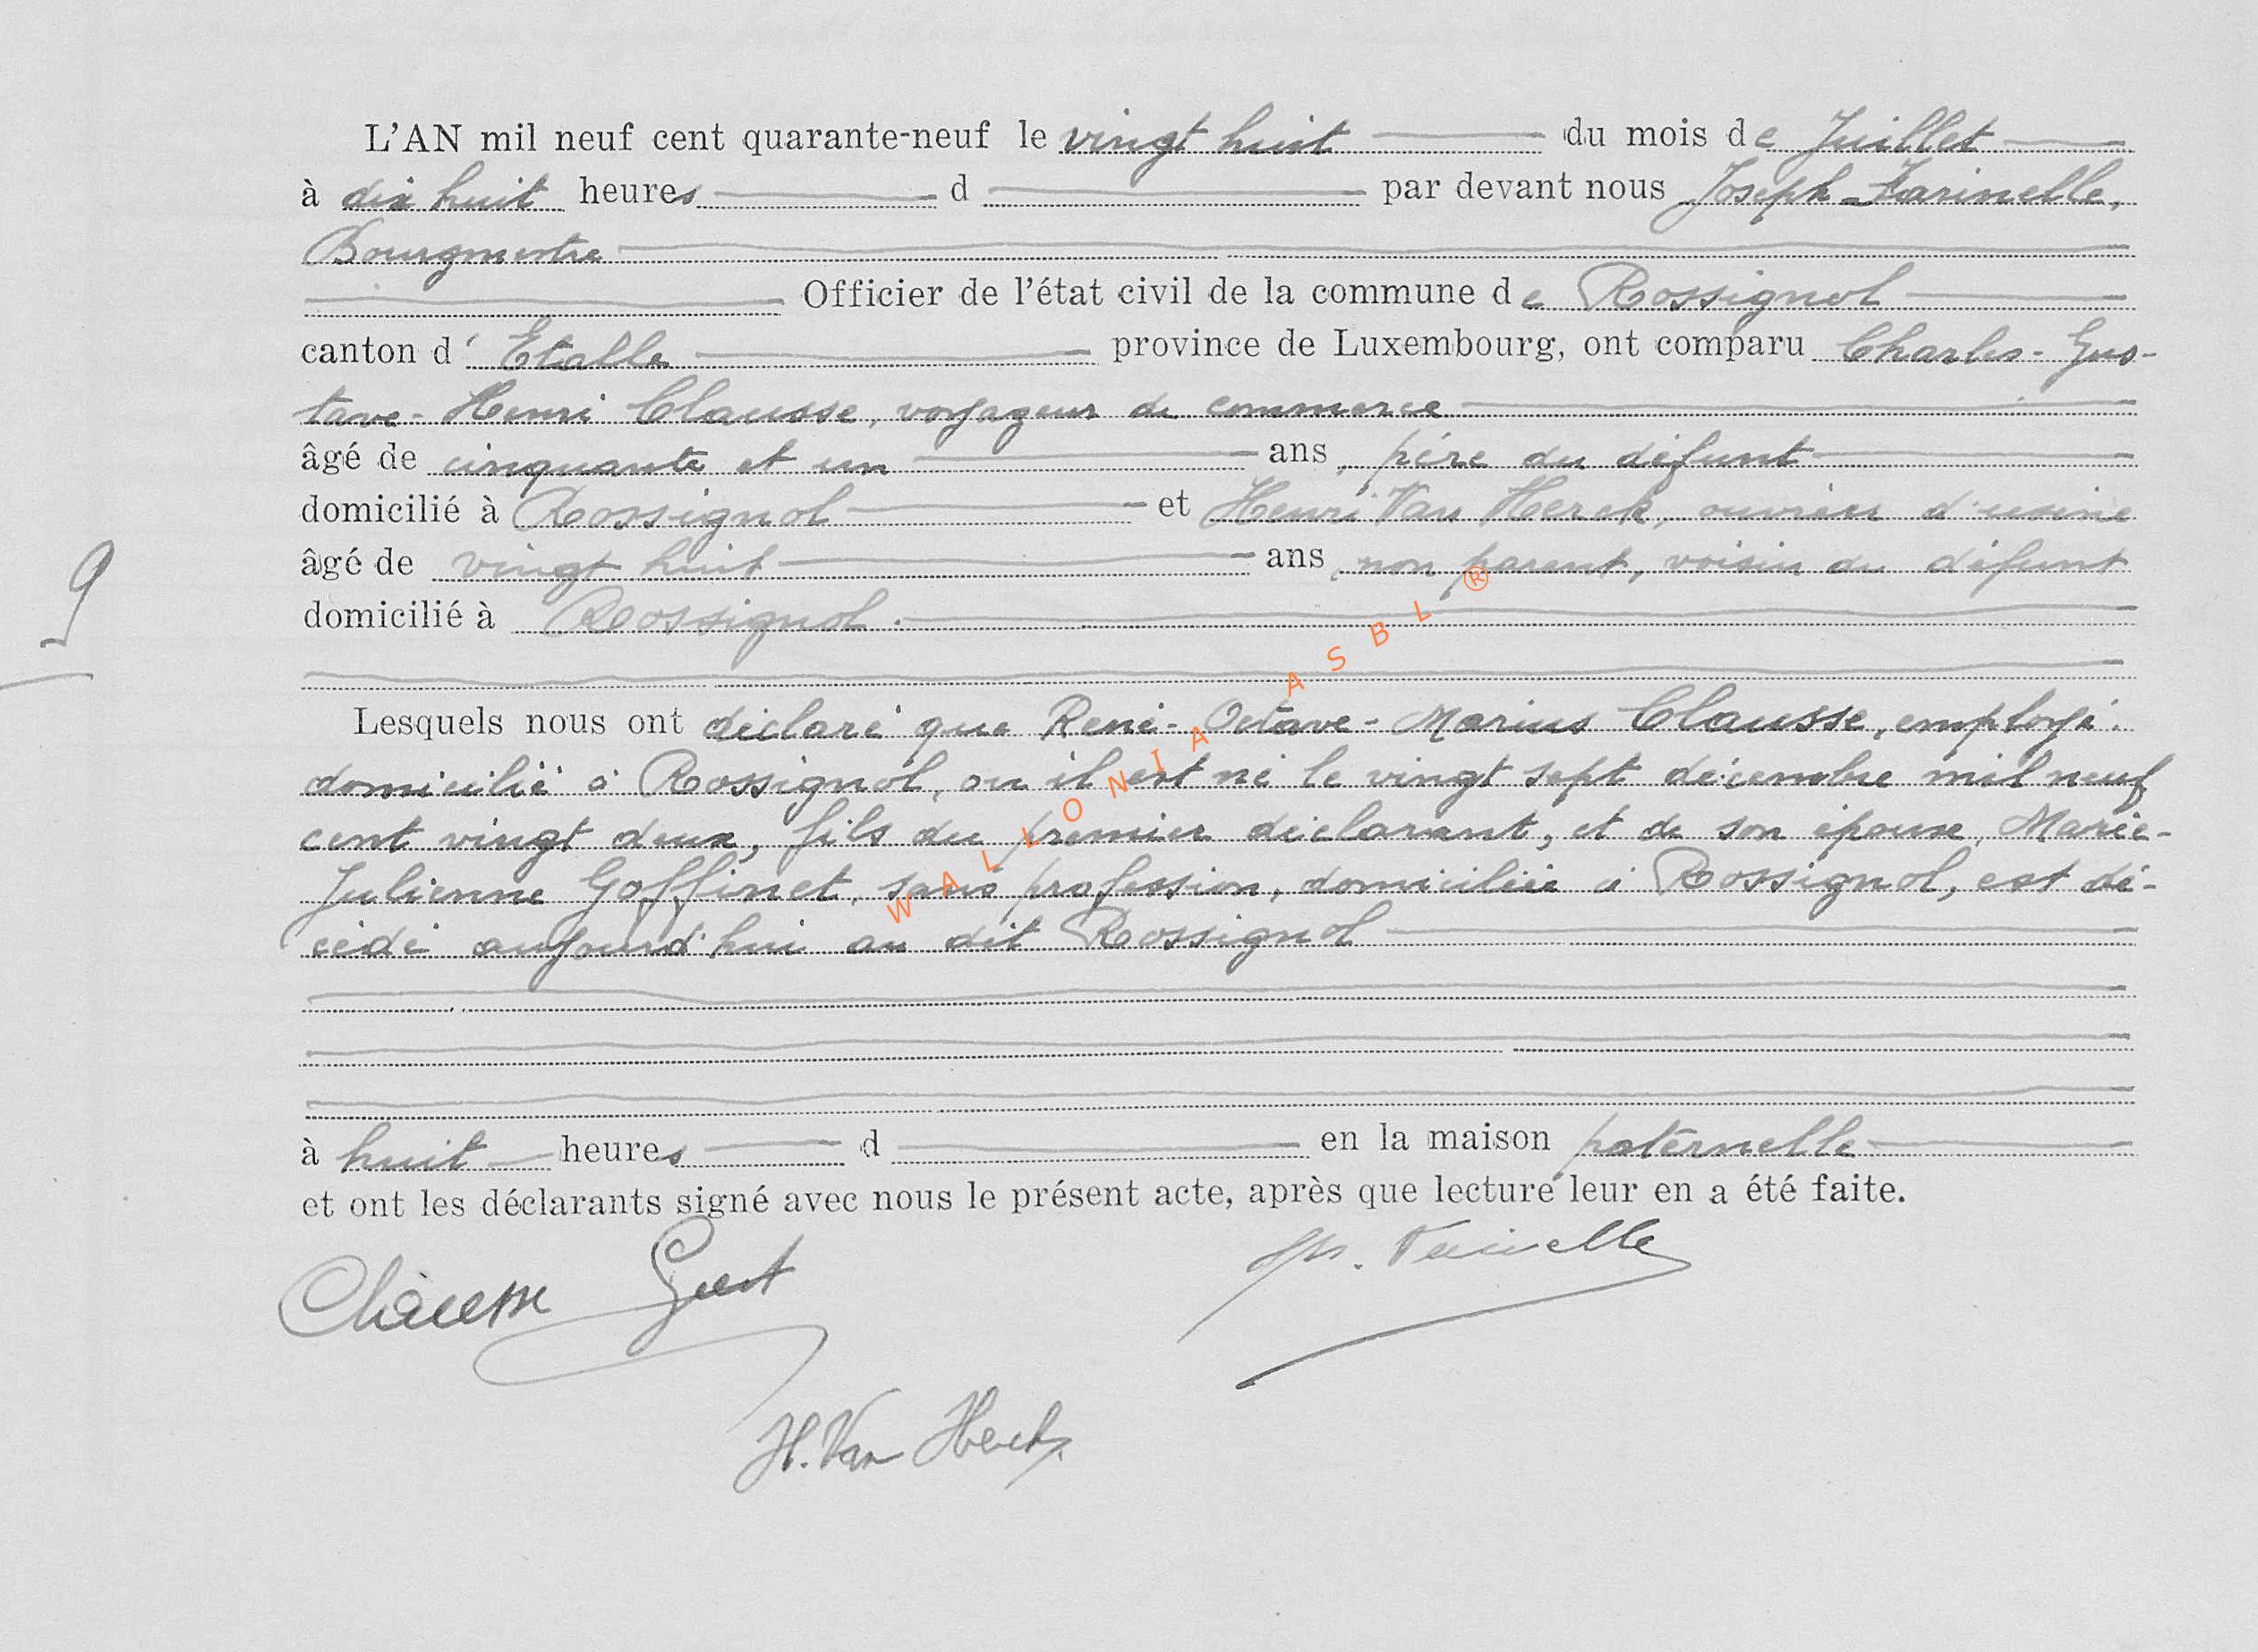 L'AN mil neuf cent quarante-neuf le vingt huit du mois de Juillet
à dix huit heures d par devant nous Joseph Farinelle,
Bourgmestre
Officier de l'état civil de la commune de Rossignol
canton d' Etalle province de Luxembourg, ont comparu Charles-Gus-
tave-Henri Clausse, voyageur de commerce
âgé de cinquante et un ans, père du défunt
domicilié à Rossignol et Henri Van Herck, ouvrier d'usine
âgé de vingt huit ans, non parent, voisin du défunt
9
domicilié à Rossignol.
Lesquels nous ont déclaré que René-Octave-Marius Clausse, employé
domicilié à Rossignol, ou il est né le vingt sept décembre mil neuf
cent vingt deux, fils du premier déclarant, et de son épouse, Marie-
Julienne Goffinet, sans profession, domiciliée à Rossignol, est dé-
cédé aujourd'hui au dit Rossignol
à huit heures d en la maison paternelle
et ont les déclarants signé avec nous le présent acte, après que lecture leur en a été faite.
Clausse Gust
H. Van Herck
WALLONIA ASBL ®